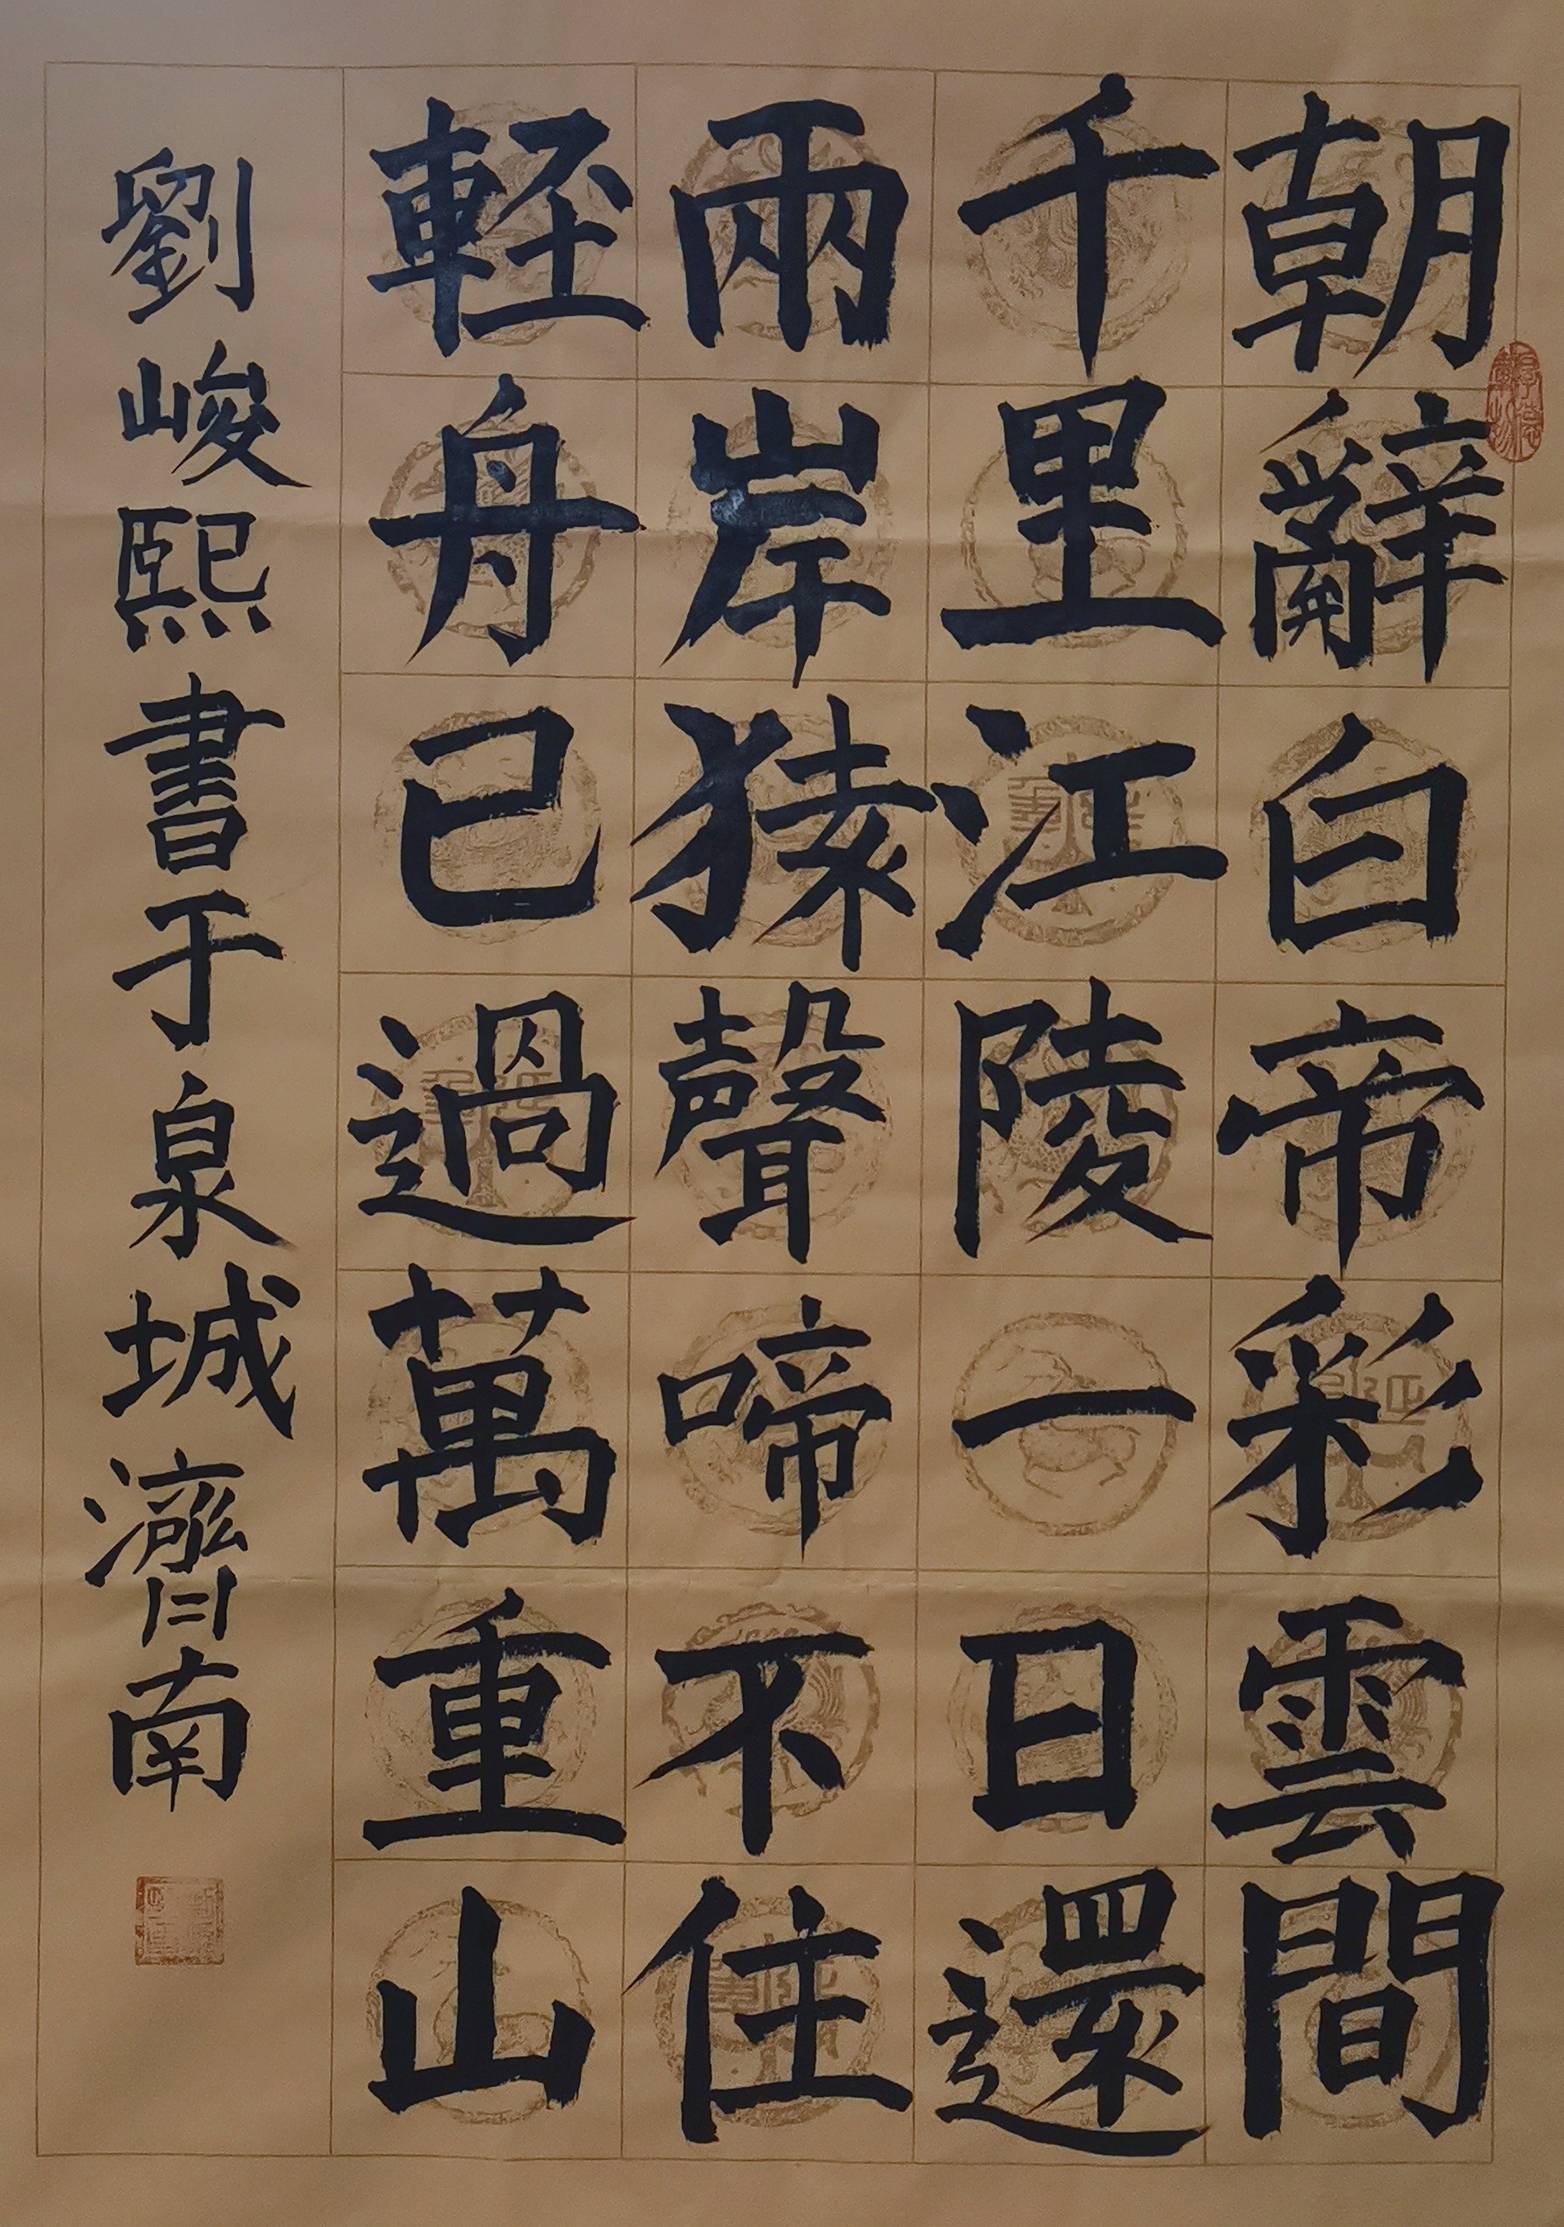 朝辭白帝彩雲間
千里江陵一日還
兩岸猿聲啼不住
輕舟已過萬重山
劉峻熙書于泉城濟南
厚德載物